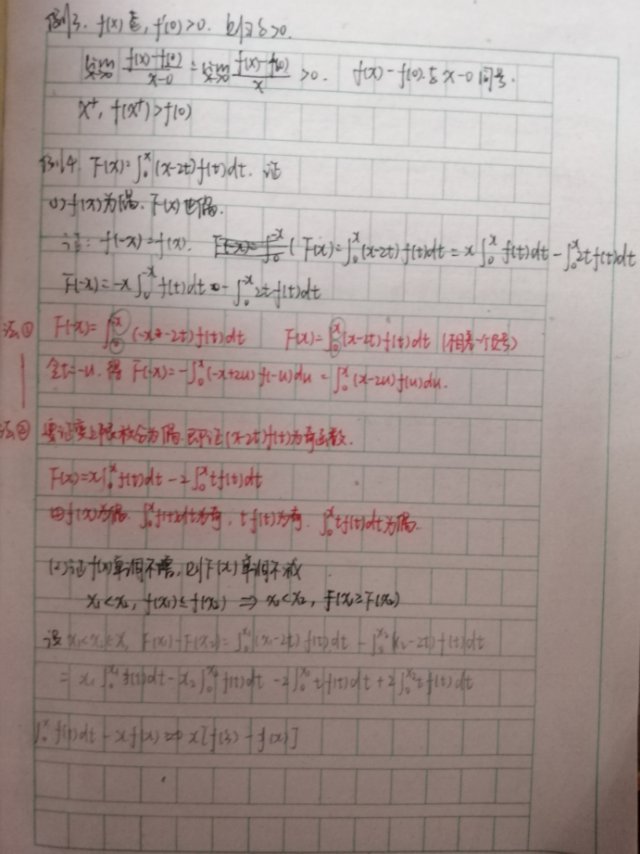 例3. f(x) 连, f'(0)>0. 则∃δ>0.
lim x→0 f(x)-f(0)/x-0 = lim x→0 f(x)-f(0)/x >0. f(x)-f(0)与x-0同号.
x⁺, f(x⁺)>f(0)
例4. F(x)=∫₀ˣ(x-2t)f(t)dt. 证
(1) f(x)为偶. F(x)也偶.
证: f(-x)=f(x). F(x)=∫₀ˣ(x-2t)f(t)dt = x∫₀ˣf(t)dt - ∫₀ˣ2tf(t)dt
F(-x)=-x∫₀⁻ˣf(t)dt - ∫₀⁻ˣ2tf(t)dt
法① F(-x)=∫₀⁻ˣ(-x-2t)f(t)dt F(x)=∫₀ˣ(x-2t)f(t)dt (只差一个负号)
令t=-u. 得 F(-x)=-∫₀ˣ(-x+2u)f(-u)du = ∫₀ˣ(x-2u)f(u)du.
法② 要证变上限积分为偶. 即证(x-2t)f(t)为奇函数.
F(x)=x∫₀ˣf(t)dt-2∫₀ˣtf(t)dt
由f(x)为偶. ∫₀ˣf(t)dt为奇, tf(t)为奇. ∫₀ˣtf(t)dt为偶.
(2)证f(x)单调不增, 则F(x)单调不减
x₁<x₂, f(x₁)≤f(x₂) ⇒ x₁<x₂, F(x₁)≥F(x₂)
设 F(x₁)-F(x₂)=∫₀ˣ¹(x₁-2t)f(t)dt-∫₀ˣ²(x₂-2t)f(t)dt
= x₁∫₀ˣ¹f(t)dt-x₂∫₀ˣ²f(t)dt-2∫₀ˣ¹tf(t)dt+2∫₀ˣ²tf(t)dt
∫₀ˣf(t)dt-xf(x) ⇒ x[f(ξ)-f(x)]